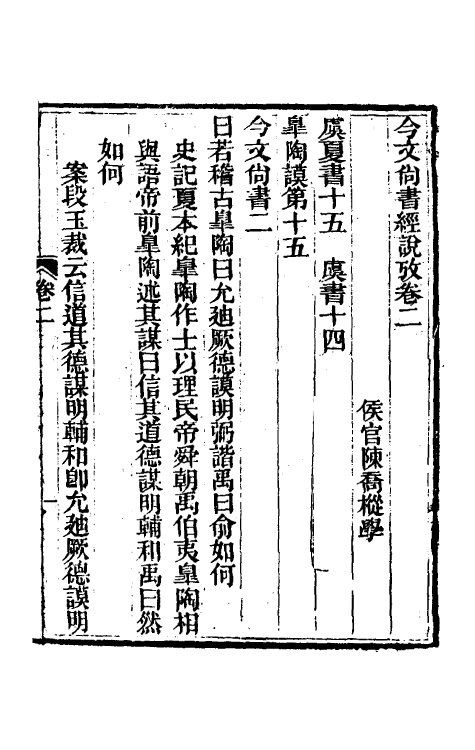 今文尙書經說攷卷二
侯官陳喬樅學
虞夏書十五　虞書十四
皐陶謨第十五
今文尙書二
曰若稽古皐陶曰允迪厥德謨明弼諧禹曰兪如何
史記夏本紀皐陶作士以理民帝舜朝禹伯夷皐陶相
與語帝前皐陶述其謀曰信其道德謀明輔和禹曰然
如何
案段玉裁云信道其德謀明輔和卽允迪厥德謨明
卷二
一